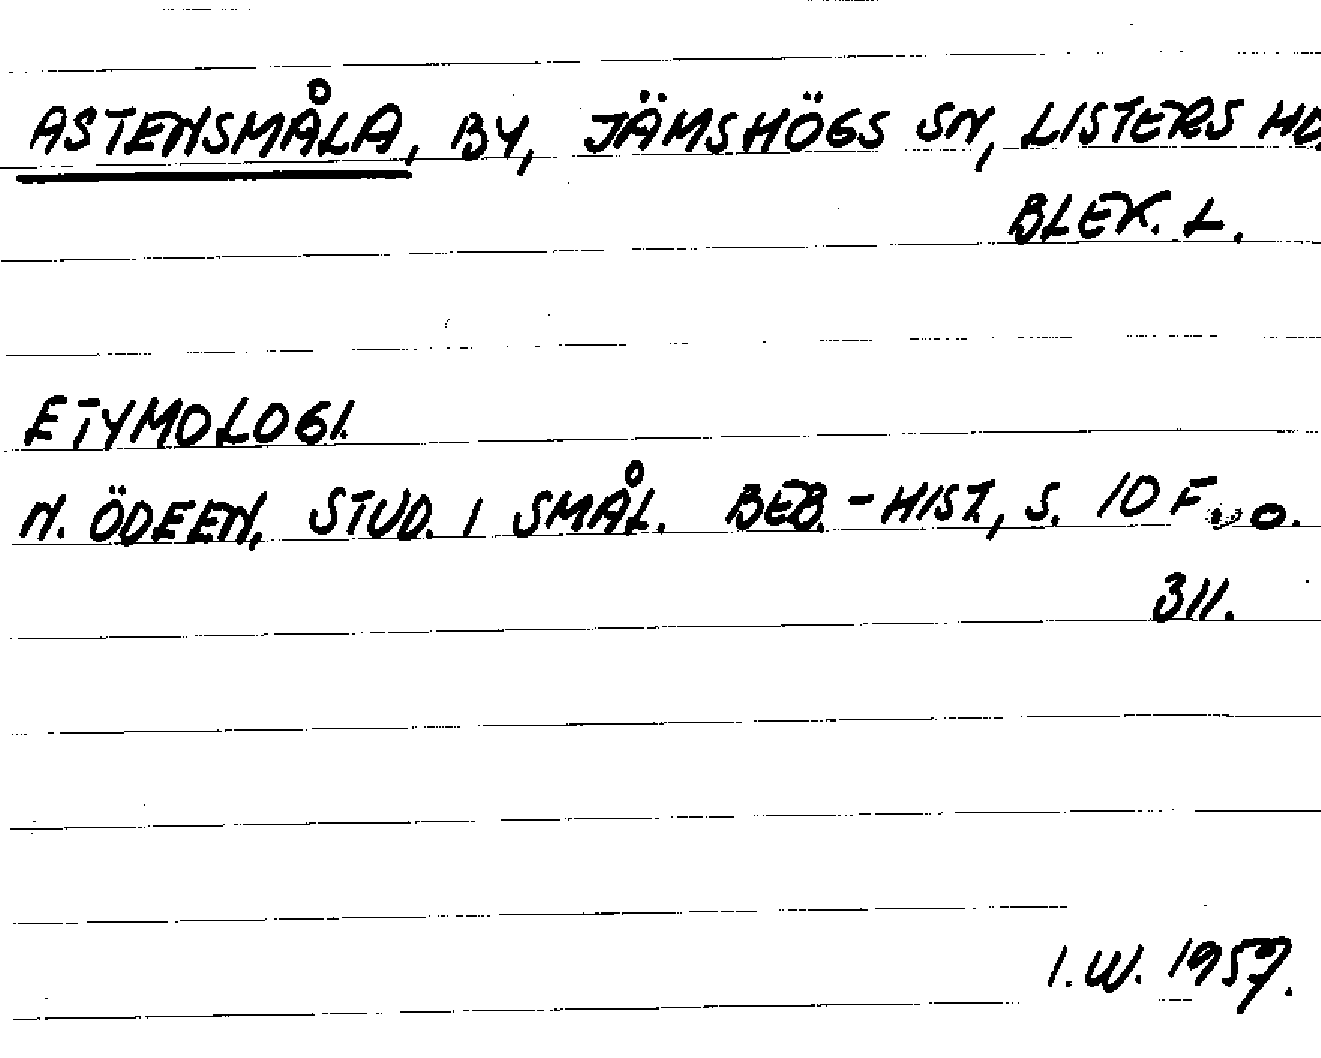 ASTENSMÅLA, BY, JÄMSHÖGS SN, LISTERS HD.
BLEK. L.
ETYMOLOGI.
N. ÖDEEN, STUD. I SMÅL. BEB.-HIST., S. 10 F. O.
311.
I.W. 1957.